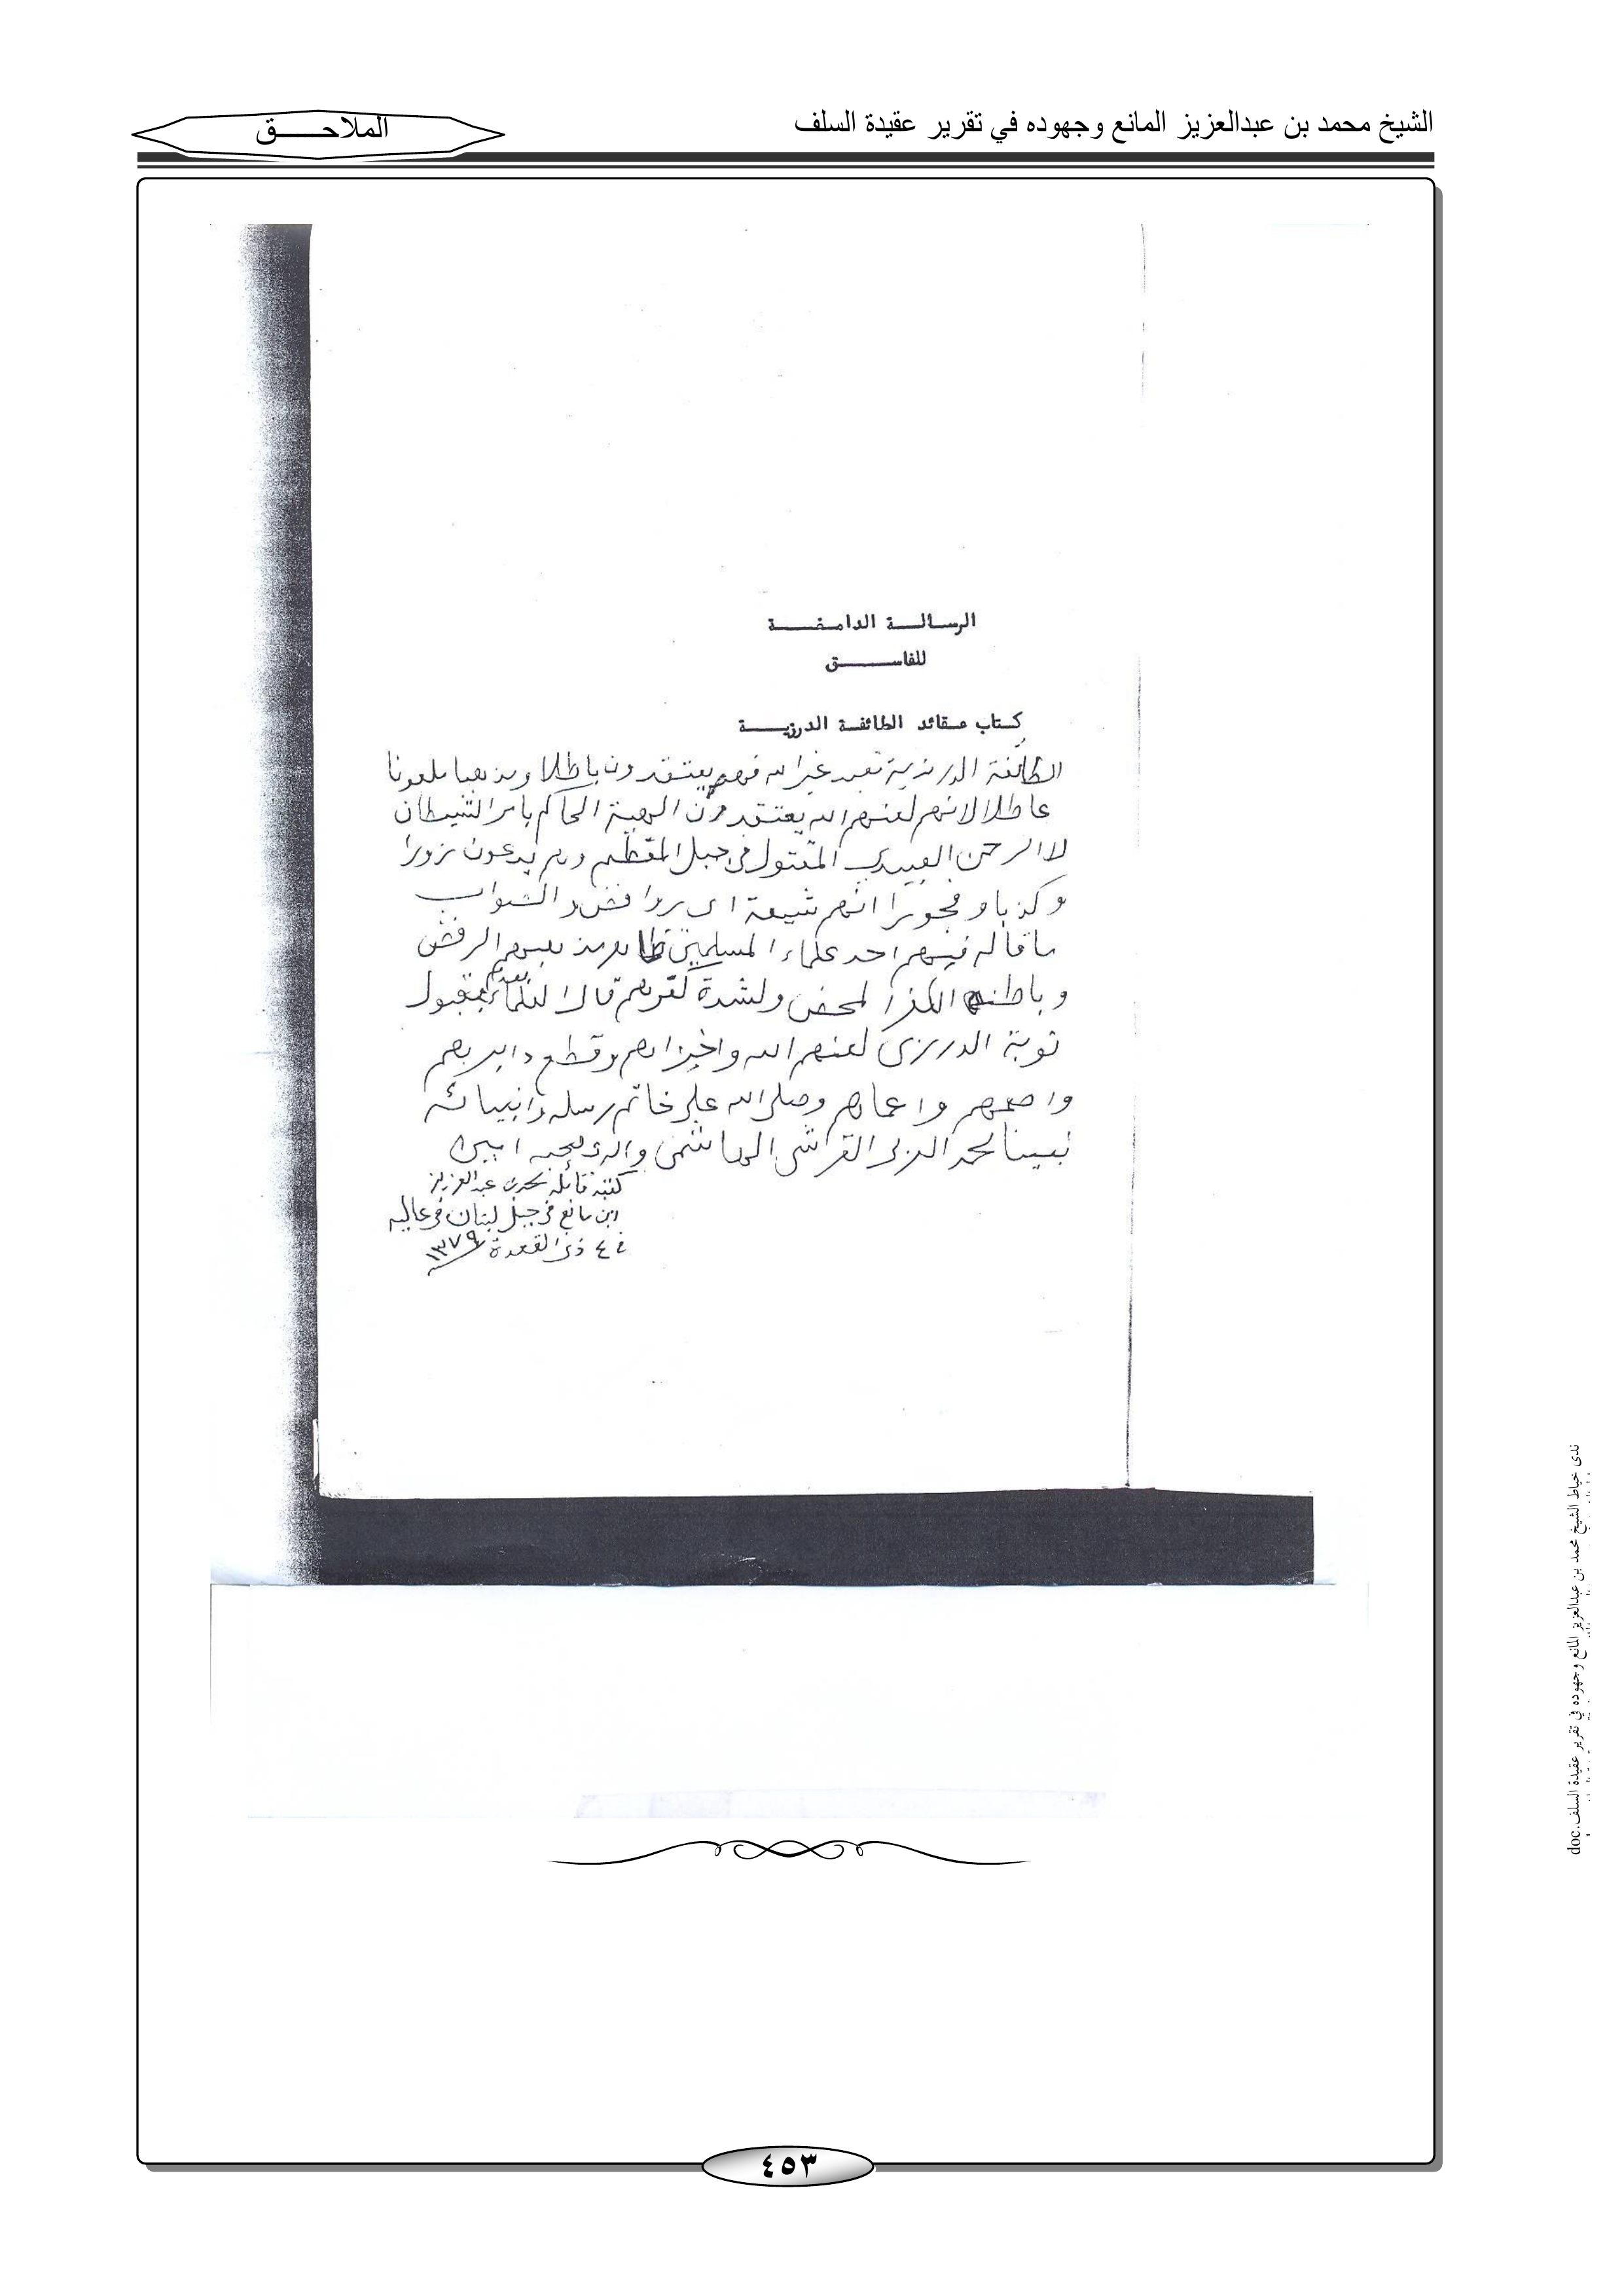 الشيخ محمد بن عبدالعزيز المانع وجهوده في تقرير عقيدة السلف
الملاحـــــق
الرسـالــة الدامـغــــة
للفاســــــق
كـتاب عـقائد الطائفـة الدرزيــــة
الطائفة الدرزية تعبد غير الله فهم يعتقدون باطلا ومذهبا ملعونا
عاطلا لانهم لعنهم الله يعتقدون الهية الحاكم بامر الشيطان
لا الرحمن العبيدي المقتول في جبل المقطم وهم يدعون زورا
وكذبا وفجورا انهم شيعة اى روافض والصواب
ما قاله فيهم احد علماء المسلمين ظاهر مذهبهم الرفض
وباطنه الكفر المحض ولشدة كفرهم قال العلماء بعدم قبول
توبة الدرزى لعنهم الله واخزاهم وقطع دابرهم
واصمهم واعماهم وصلى الله على خاتم رسله وانبيائه
نبينا محمد العربى القرشى الهاشمى واله وصحبه امين
كتبه قائله محمد بن عبدالعزيز
ابن مانع في جبل لبنان في عاليه
في ٤ ذى القعدة ١٣٧٩
٤٥٣
ندى خياط الشيخ محمد بن عبدالعزيز المانع وجهوده في تقرير عقيدة السلف.doc